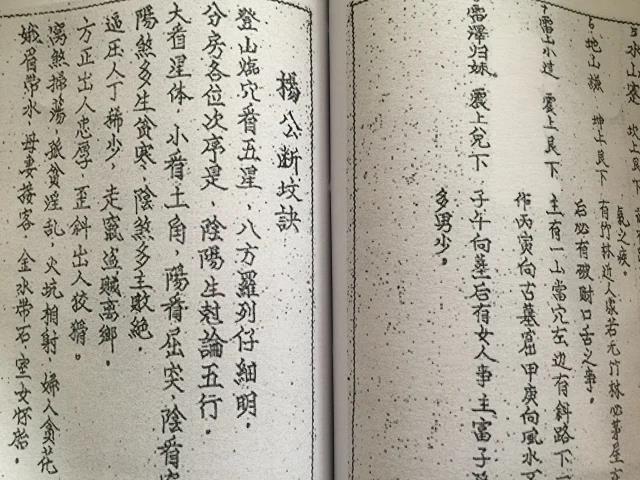 5 水山寒 坎上艮下
气之疾。
6. 地山謙 坤上艮下 有竹林近人家若无竹林必茅屋
后必有破財口舌之事。
7 雷山小过 震上艮下 主有一山當穴左边有斜路下
作丙寅向古墓富出甲庚向風水
雷澤归妹。震上兌下 子午向墓后有女人事主富子
多男少。
楊公断坟訣
登山臨穴看五星，八方羅列仔細明。
分房各位次序是，陰陽生尅論五行。
大看星体，小看土角，陽看屈突，陰看
陽煞多生貧寒，陰煞多主敗絶。
逼压人丁稀少，走竄盗賊离鄉。
方正出人忠厚，歪斜出人狡猾。
窝煞掃荡，孤貧淫乱，火坑相射，婦人貪花
娥眉带水，母妻接客，金水带石，室女怀胎。